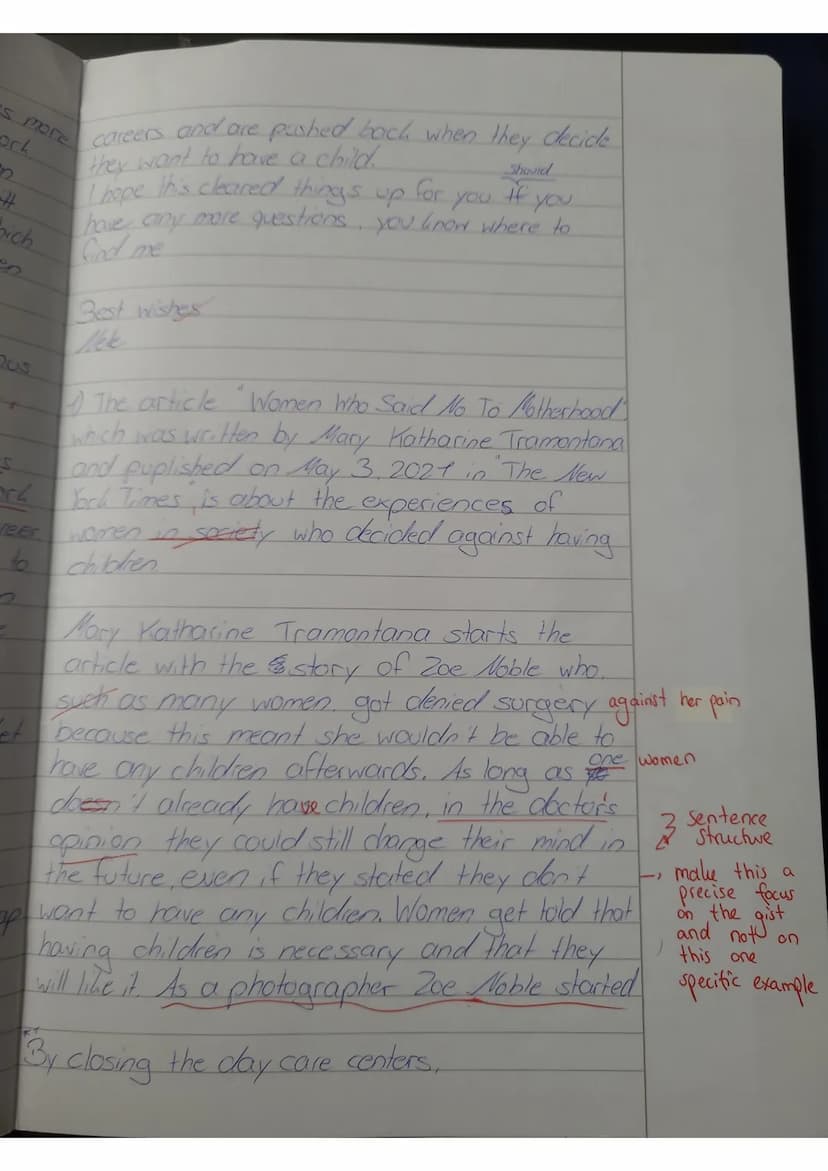 careers and are pushed back when they decide
they want to have a child.
should
I hope this cleared things up for you If you
have any more questions, you know where to
find me
Best wishes
1) The article "Women Who Said No To Motherhood"
which was written by Mary Katharine Tramontana
and puplished on May 3, 2021 in "The New
York Times", is about the experiences of
women in society who decided against having
children
Mary Katharine Tramontana starts the
article with the story of Zoe Noble who,
such as many women, got denied surgery against her pain
because this meant she wouldn't be able to
have any children afterwards. As long as one women
doesn't already have children, in the doctor's
opinion they could still change their mind in
the future, even if they stated they don't
want to have any children. Women get told that
having children is necessary and that they
will like it. As a photographer Zoe Noble started
By closing the day care centers,
sentence
structure
make this a
precise focus
on the gist
and not on
this one
specific example